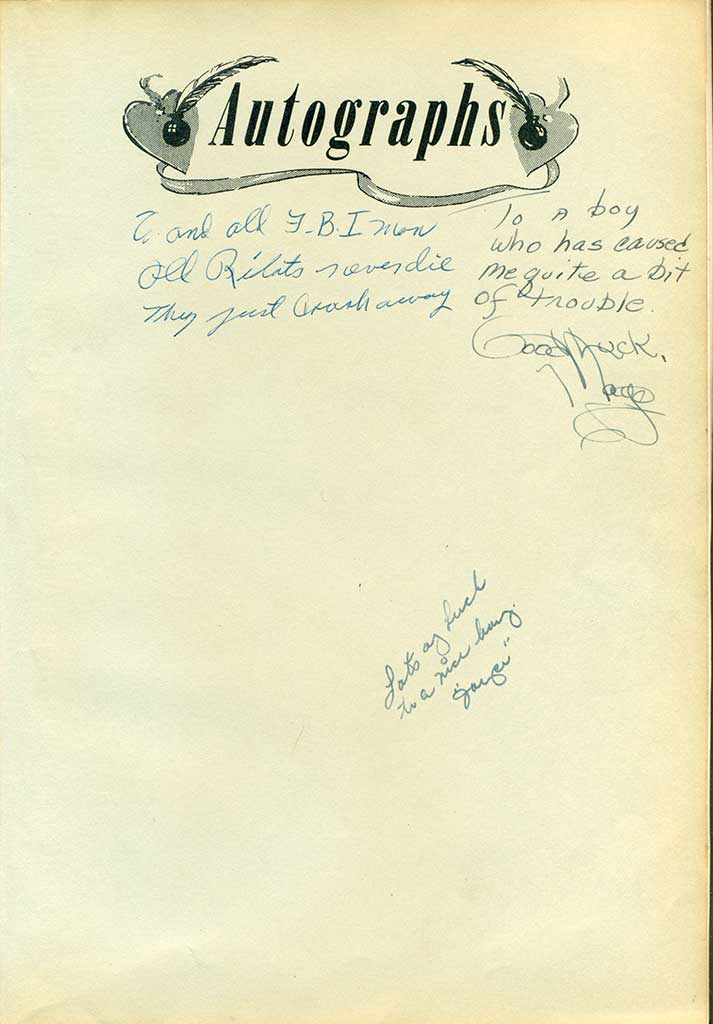 Autographs
and all F.B.I men
Old Pilots never die
They just Crash away
To A boy
who has caused
me quite a bit
of trouble.
Good Luck,
Lots of Luck
to a nice boy.